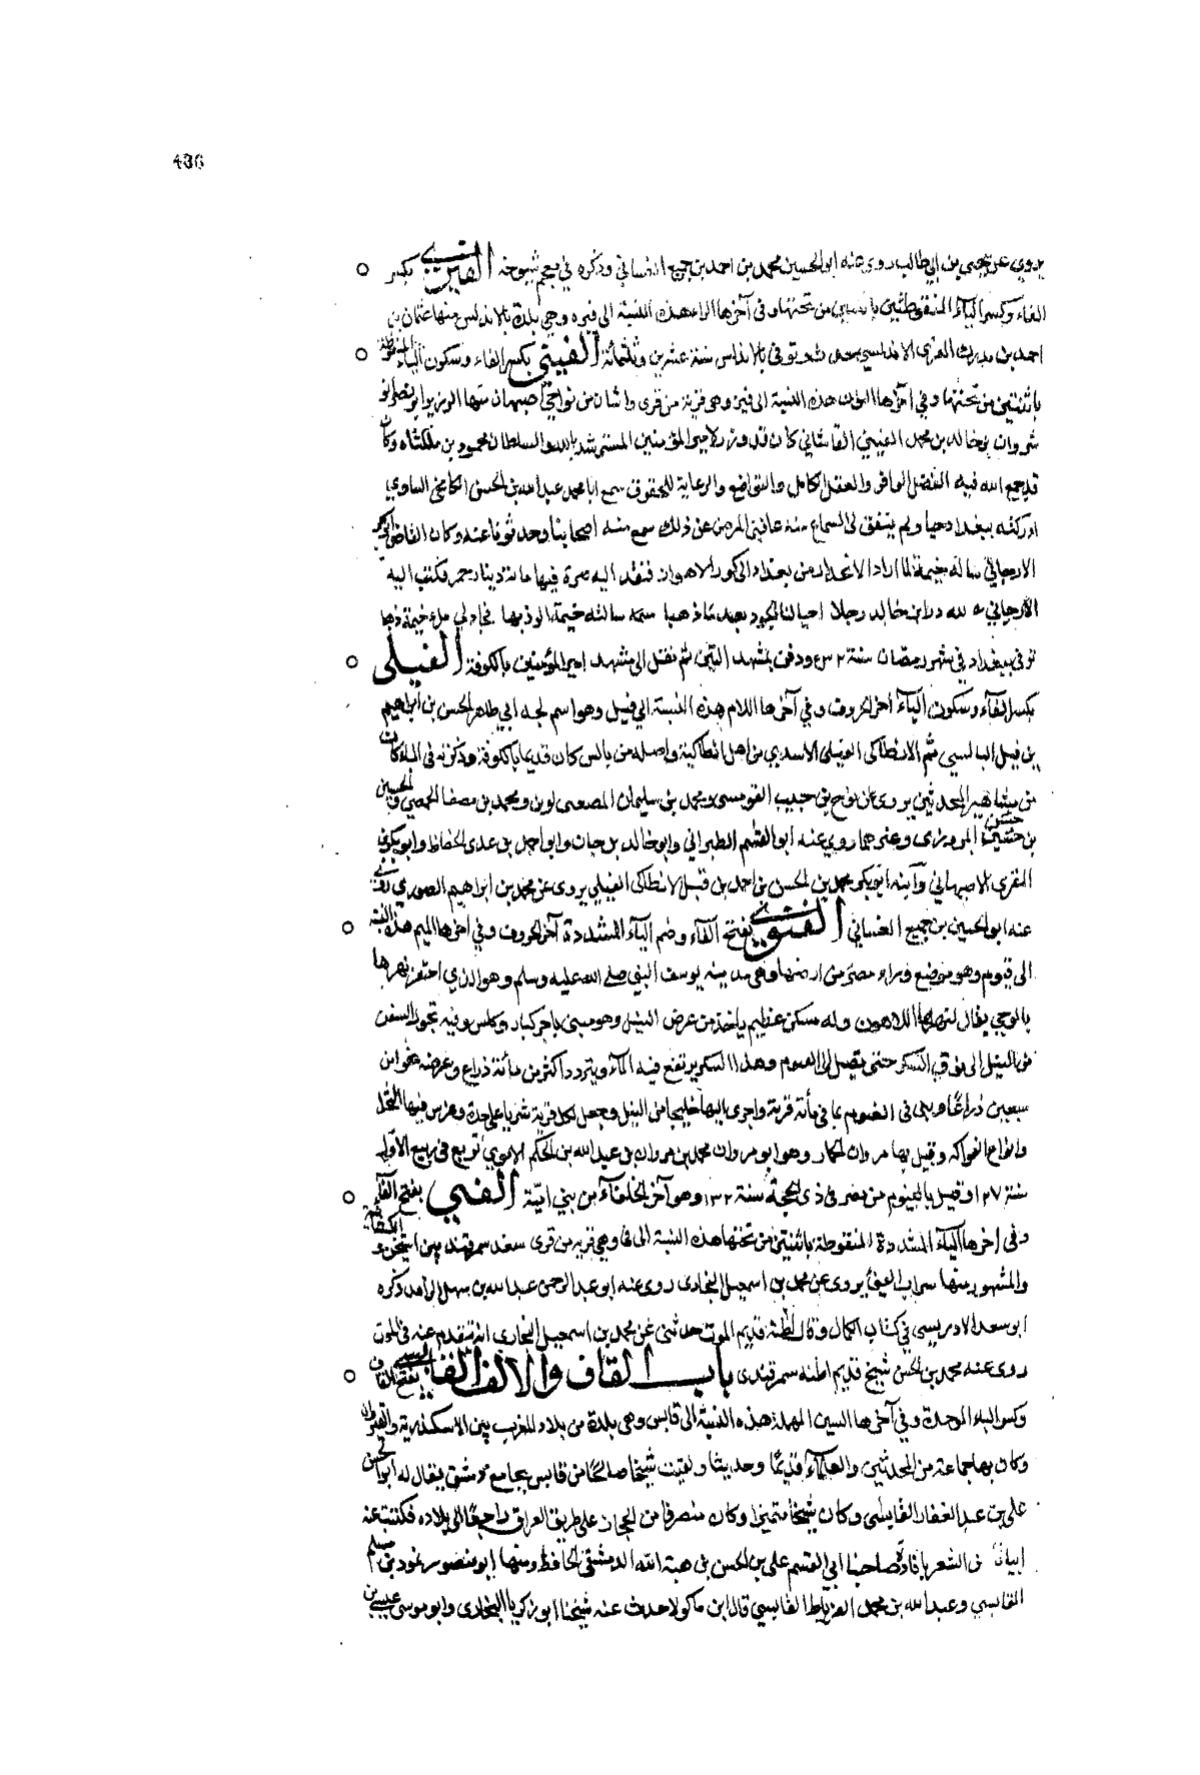 436
يروي عن يحيى بن ابي طالب روى عنه ابو الحسين محمد بن احمد بن جميع الغساني وذكره في معجم شيوخه الفيري بكسر
الفاء وكسر الياء المنقوطة باثنتين من تحتها وفي آخرها الراء هذه النسبة الى فيره وهي بلدة بالاندلس منها عثمان بن
احمد بن مدرك الاندلسي توفي بالاندلس سنة عشرين وثلثمائة الفيني بكسر الفاء وسكون الياء المنقوطة
باثنتين من تحتها وفي آخرها النون هذه النسبة الى فين وهي قرية من قرى قاشان من نواحي اصبهان منها الوزير ابو نصر انو
شروان بن خالد بن محمد الفيني القاشاني كان قد وزر لامير المؤمنين المسترشد بالله والسلطان محمود بن ملكشاه وكان
قد جمع الله فيه الفضل الوافر والعقل الكامل والتواضع والرعاية للحقوق سمع ابا محمد عبد الله بن الحسن الكامخي الساوي
ادركته ببغداد حيا ولم يتفق لي السماع منه عاقني المرض عن ذلك سمع منه اصحابنا وحدثونا عنه وكان القاضي ابو بكر
الارجاني سأله خيمة لما اراد الانحدار من بغداد الى كور الاهواز فنفذ اليه صرة فيها مائة دينار حمر فكتب اليه
الارجاني لله در ابن خالد رجلا احيا لنا الجود بعد ما ذهبا سألته خيمة الوذ بها فجاد لي ملء خيمة ذهبا
توفي ببغداد في شهر رمضان سنة ودفن بمشهد التبن ثم نقل الى مشهد امير المؤمنين بالكوفة الفيلي
بكسر الفاء وسكون الياء آخر الحروف وفي آخرها اللام هذه النسبة الى فيل وهو اسم لجد ابي طاهر الحسن بن ابراهيم
بن فيل البالسي ثم الانطاكي الفيلي الاسدي من اهل انطاكية واصله من بالس كان قديما بالكوفة وذكرته في الباء كان
من مشاهير المحدثين يروي عن نوح بن حبيب القومسي ومحمد بن سليمان المصيصي لوين ومحمد بن مصفا الحمصي والحسين
بن حسن المروزي وغيرهما روى عنه ابو القسم الطبراني وابو حاتم بن حبان وابو احمد بن عدي الحفاظ وابو بكر بن
المقرئ الاصبهاني وابنه ابو بكر محمد بن الحسن بن احمد بن فيل الانطاكي الفيلي يروي عن محمد بن ابراهيم الصوري روى
عنه ابو الحسين بن جميع الغساني الفيومي بفتح الفاء وضم الياء المشددة آخر الحروف وفي آخرها الميم هذه النسبة
الى فيوم وهو موضع وراء مصر من ارضها وهي مدينة يوسف النبي صلى الله عليه وسلم وهو الذي احتفر نهرها
بالوحي يقال لنهرها اللاهون وله سكر عظيم ياخذ من عرض النيل وهو مبني باجر كبار وكلس وفيه تجوز السفن
من النيل الى فوق السكر حتى يصل الى الفيوم وهذا السكر يرتفع فيه الماء ويتردد اكثر من مائة ذراع وعرضه نحو من
سبعين ذراعا وبنى في الفيوم ثمانمائة قرية واجرى اليها خليجا من النيل وجعل لكل قرية شربا على حدة وغرس فيها النخل
وانواع الفواكه وقتل بها مروان الحمار وهو ابو مروان محمد بن مروان بن عبد الله بن الحكم الاموي بويع في ربيع الاول
سنة ١٢٧ وقتل بالفيوم من مصر في ذي الحجة سنة ١٣٢ وهو آخر الخلفاء من بني امية الفيي بفتح الفاء
وفي اخرها الياء المشددة المنقوطة باثنتين من تحتها هذه النسبة الى فا وهي قرية من قرى سغد سمرقند بين اشتيخن و
والمشهور منها سراب الفيي يروي عن محمد بن اسمعيل البخاري روى عنه ابو عبد الرحمن عبد الله بن سهل الزاهد ذكره
ابو سعد الادريسي في كتاب الكمال وقال اظنه قديم الموت حدثني عن محمد بن اسمعيل البخاري انه تقدم عنه في الموت
روى عنه محمد بن الحسن شيخ قديم اظنه سمرقندي باب القاف والالف القابسي بفتح القاف
وكسر الباء الموحدة وفي آخرها السين المهملة هذه النسبة الى قابس وهي بلدة من بلاد المغرب بين الاسكندرية والقيروان
وكان بها جماعة من المحدثين والعلماء قديما وحديثا ولقيت شيخا صالحا من قابس بجامع دمشق يقال له ابو الحسن
علي بن عبد الغفار القابسي وكان شيخا متميزا وكان منصرفا من الحجاز على طريق العراق راجعا الى بلاده فكتبت عنه
ابياتا من الشعر بافادة صاحبنا ابي القسم علي بن الحسن بن هبة الله الدمشقي الحافظ ومنها ابو منصور بن مسلم
القابسي وعبد الله بن محمد القابسي قال ابن ماكولا حدث عنه شيخنا ابو زكريا البخاري وابو موسى عيسى بن